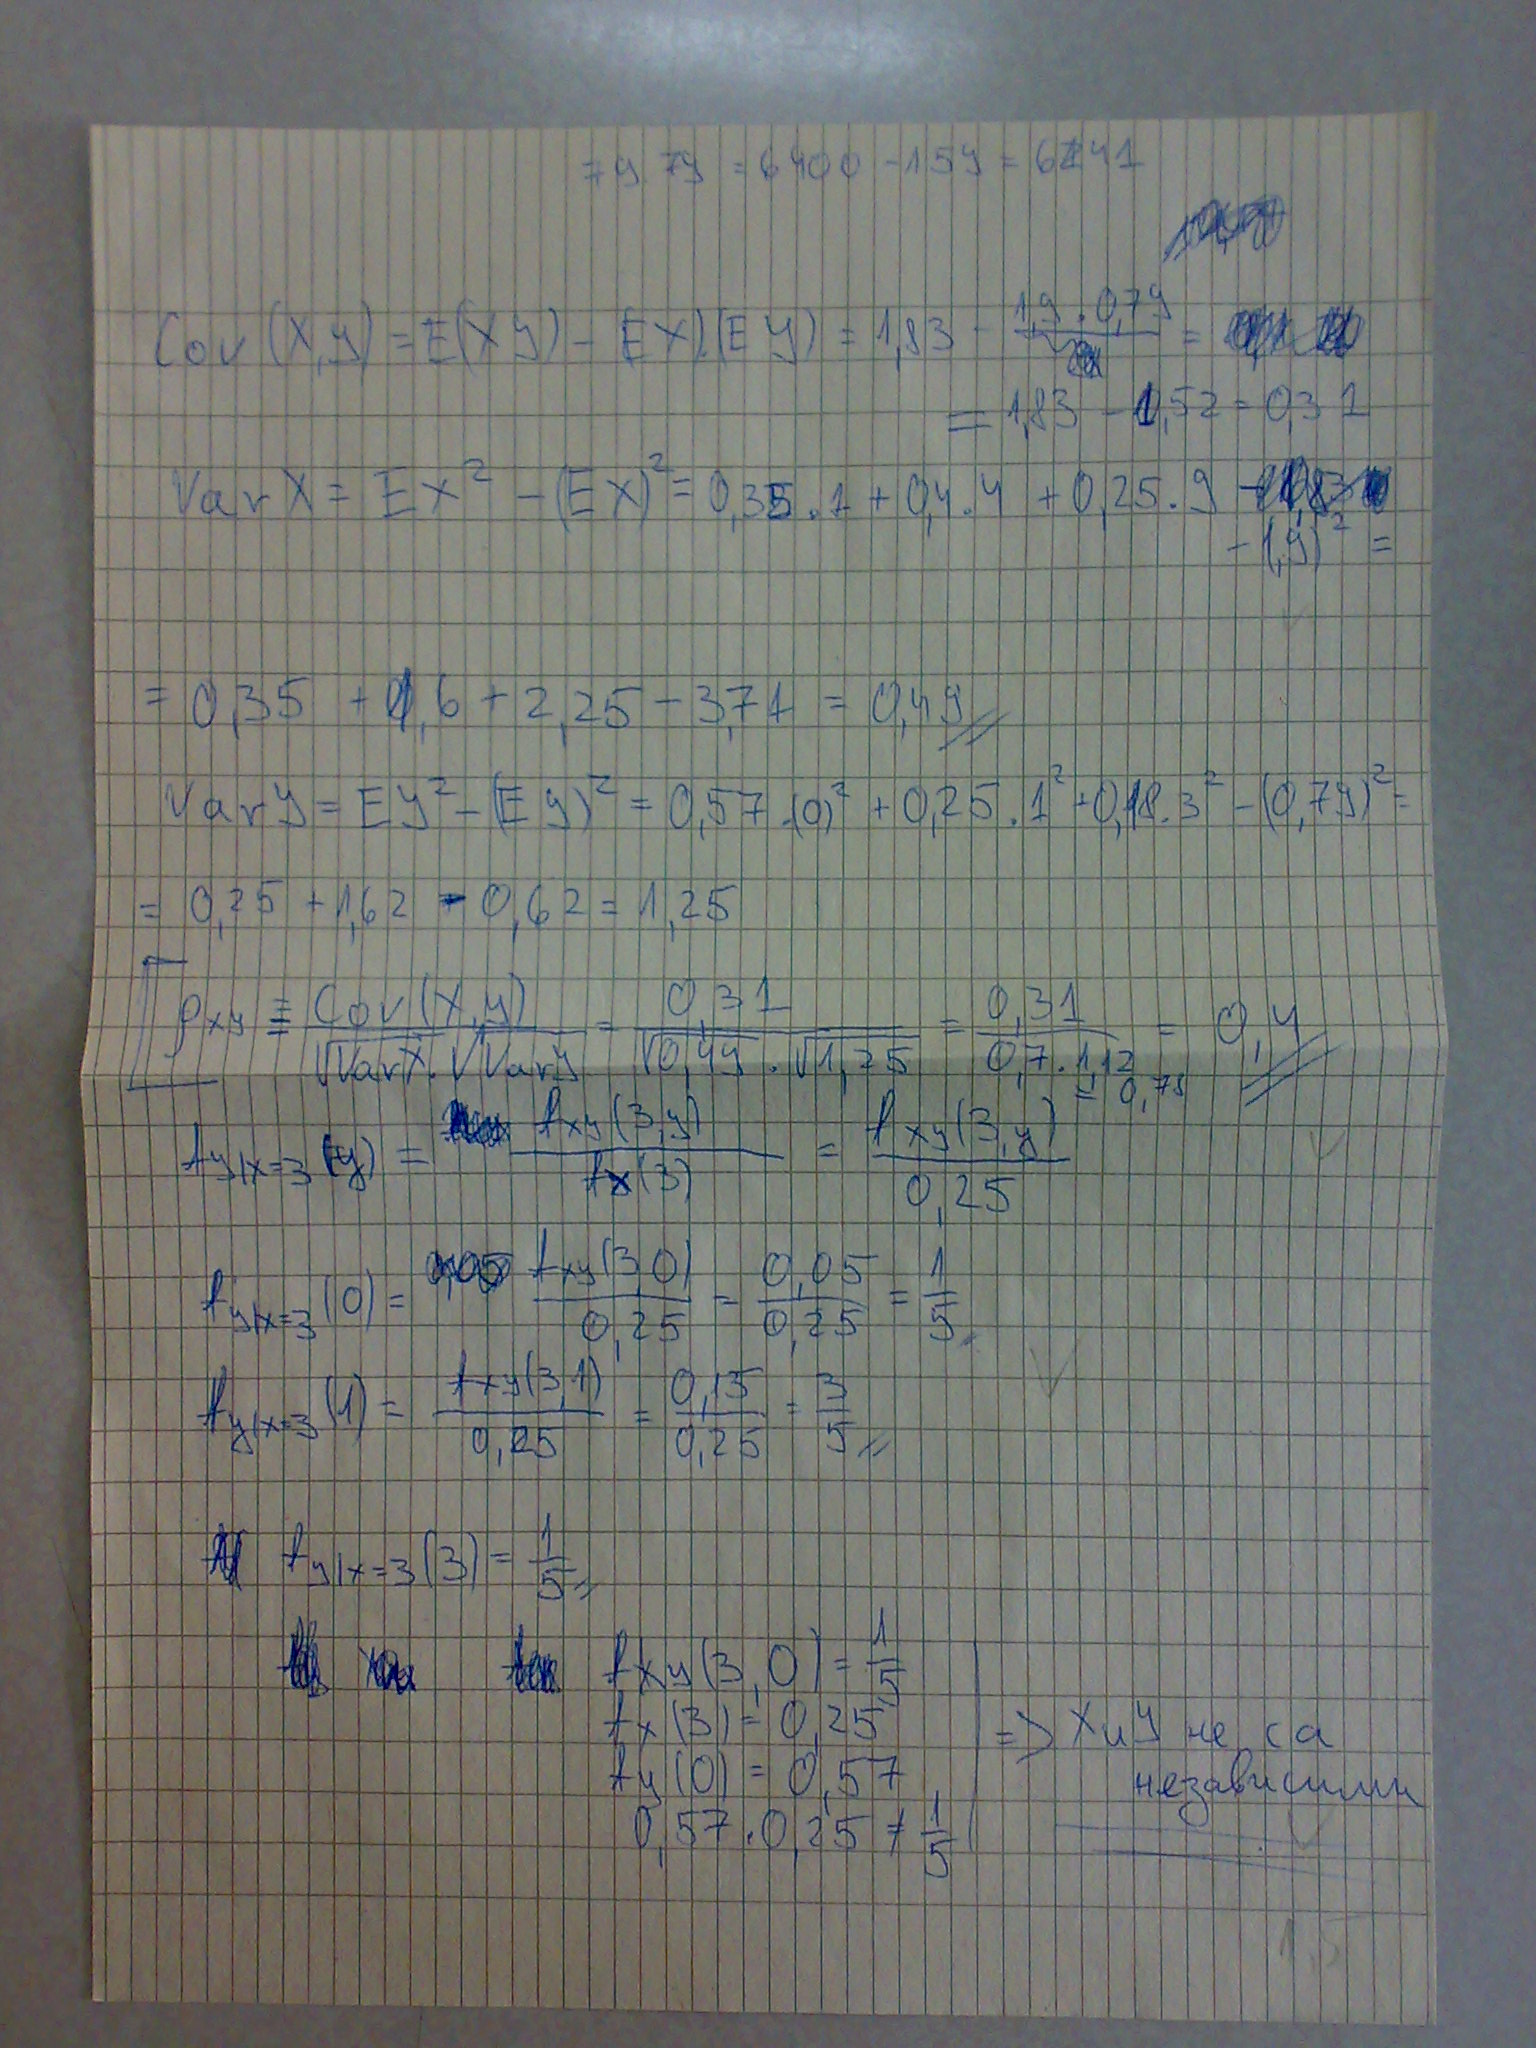 79.79 = 6400 - 159 = 6241
Cov (X,Y) = E(XY) - (EX)(EY) = 1,83 - 1,9 . 0,79 =
= 1,83 - 1,52 = 0,31
Var X = EX² - (EX)² = 0,35.1 + 0,4.4 + 0,25.9
- (1,9)² =
= 0,35 + 1,6 + 2,25 - 3,71 = 0,49
Var Y = EY² - (EY)² = 0,57.(0)² + 0,25.1² + 0,18.3² - (0,79)² =
= 0,25 + 1,62 - 0,62 = 1,25
ρxy ≡ Cov(X,Y) / √VarX . √VarY = 0,31 / √0,49 . √1,25 = 0,31 / 0,7 . 1,12 = 0,4
= 0,79
fy|x=3 (y) = fxy(3,y) / fx(3) = fxy(3,y) / 0,25
fy|x=3 (0) = fxy(3,0) / 0,25 = 0,05 / 0,25 = 1/5
fy|x=3 (1) = fxy(3,1) / 0,25 = 0,15 / 0,25 = 3/5
fy|x=3 (3) = 1/5
fxy(3,0) = 1/5
fx(3) = 0,25
fy(0) = 0,57
0,57.0,25 ≠ 1/5
=> X и Y не са
независими
1,5